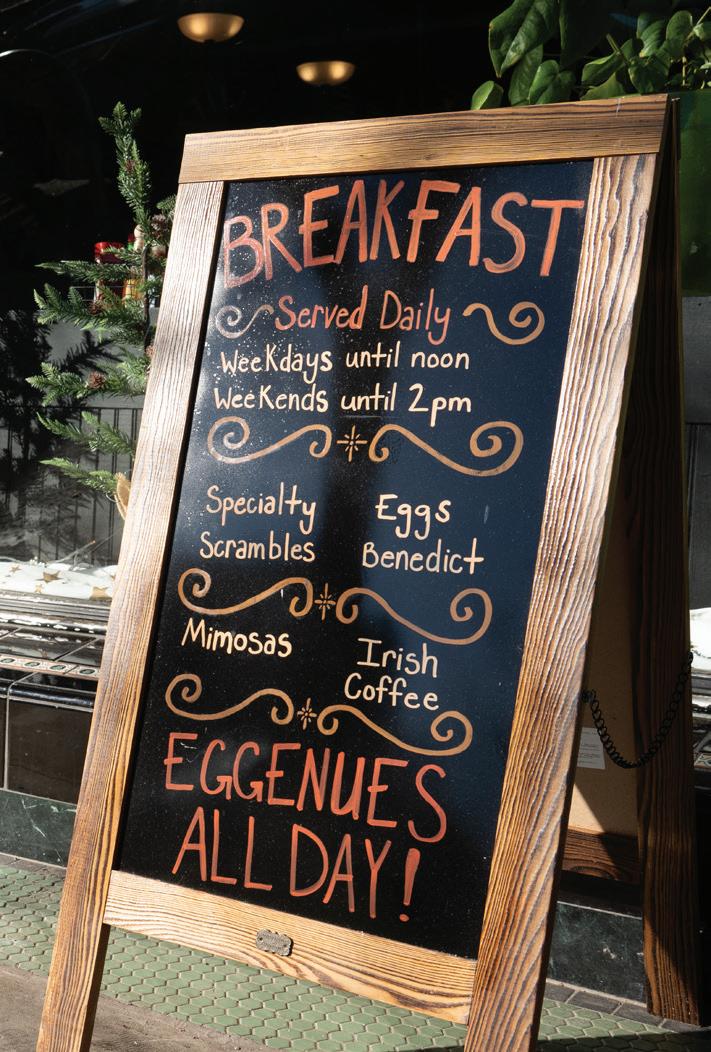 BREAKFAST
Served Daily
Weekdays until noon
Weekends until 2pm
Specialty Scrambles
Eggs Benedict
Mimosas
Irish Coffee
EGGENUES
ALL DAY!